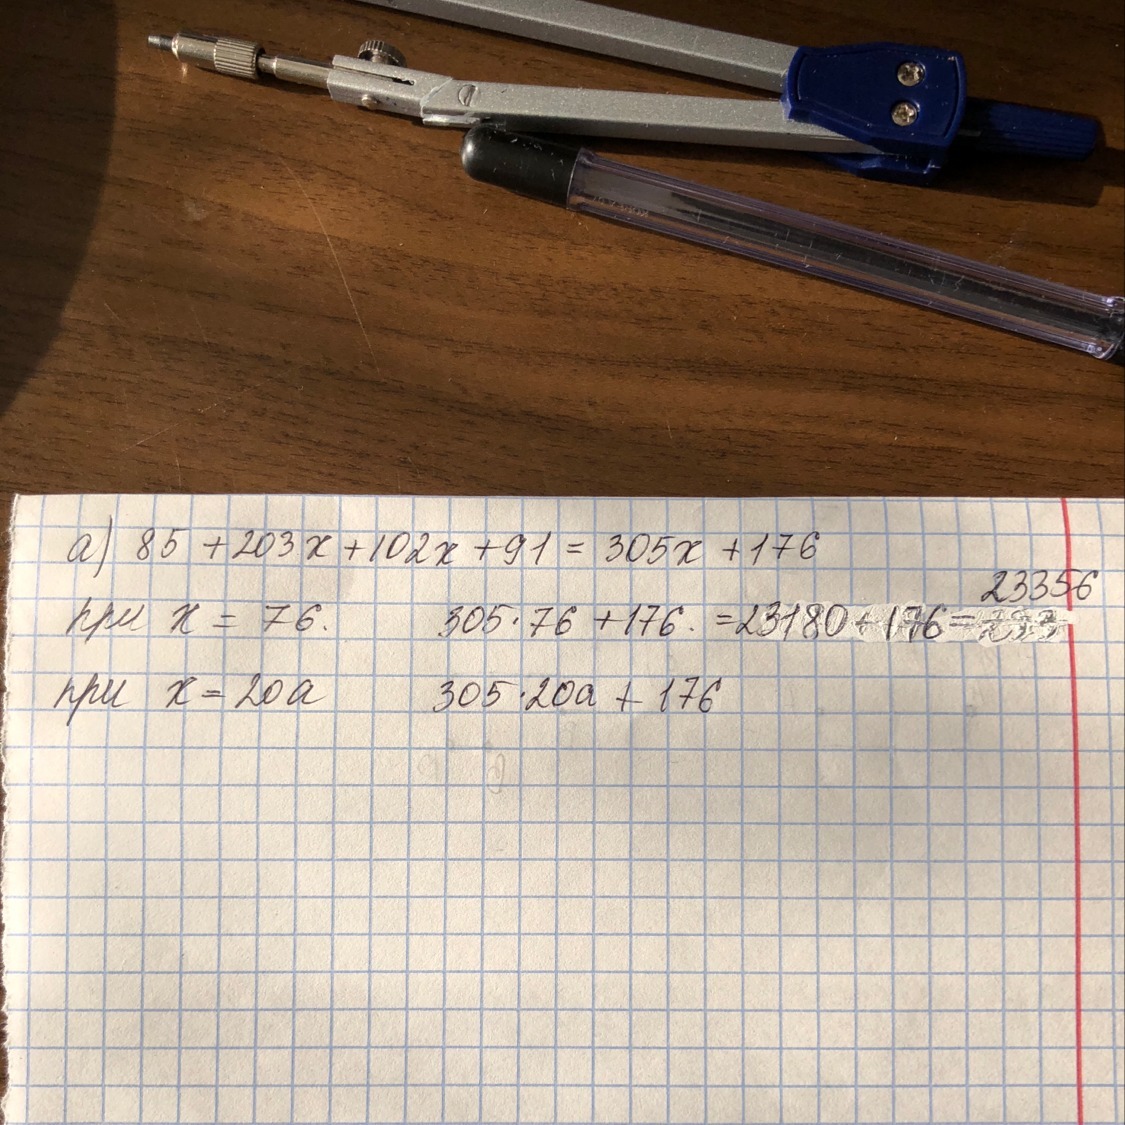 а) 85 + 203x + 102x + 91 = 305x + 176
при x = 76. 305·76 + 176. = 23180 + 176 = 23356
при x = 20a 305·20a + 176